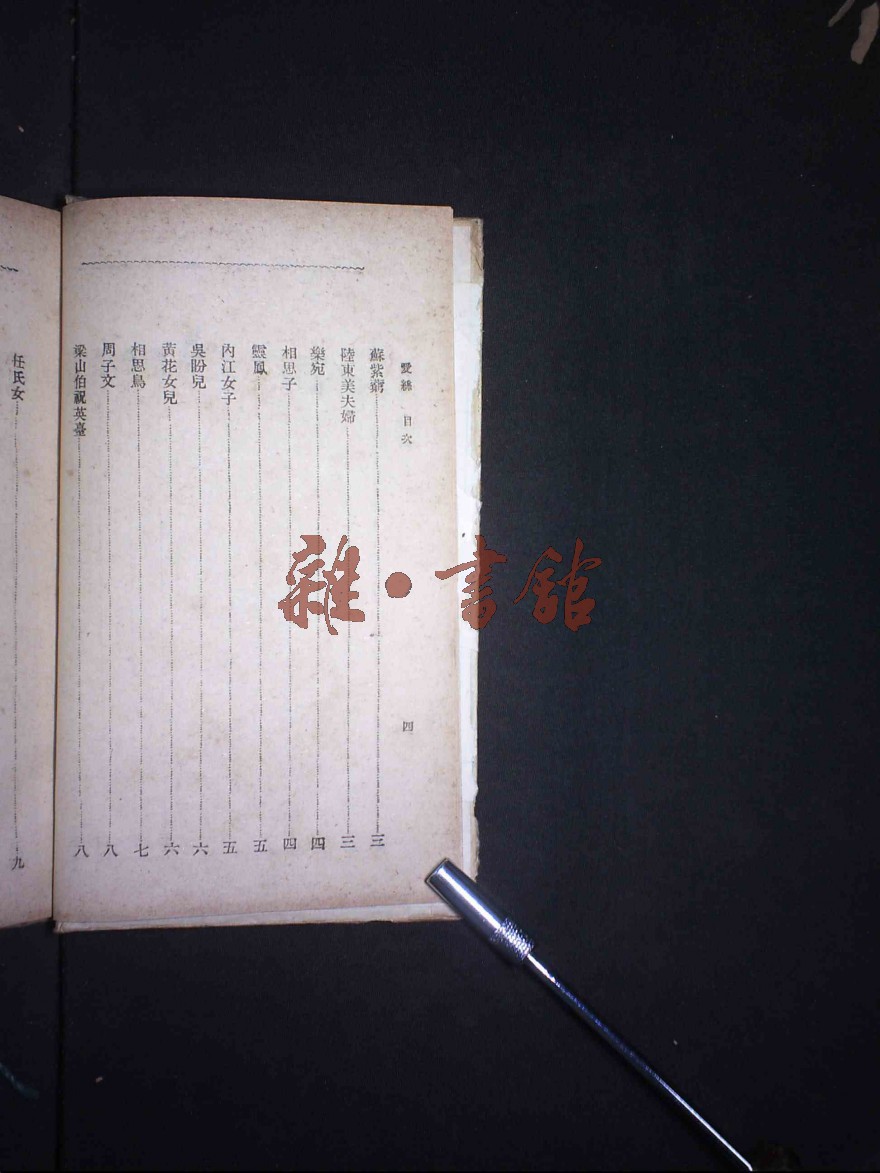 愛絲 目次
四
蘇紫藭……三
陸東美夫婦……三
樂宛……四
相思子……四
靈鳳……五
內江女子……五
吳盼兒……六
黃花女兒……六
相思鳥……七
周子文……八
梁山伯祝英臺……八
任氏女……九
雜·書館